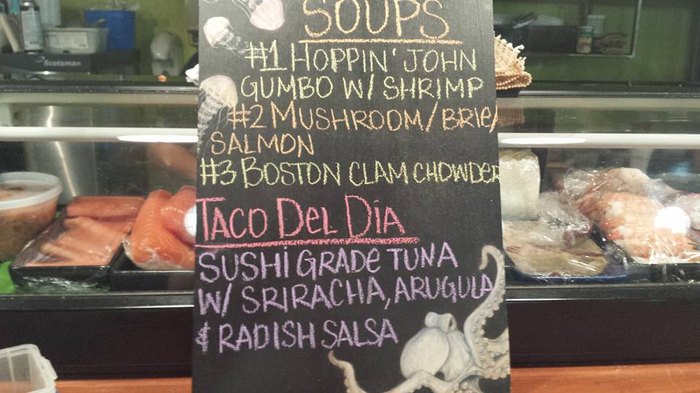 Scotsman
SOUPS
#1 HOPPIN' JOHN
GUMBO W/ SHRIMP
#2 MUSHROOM/BRIE/
SALMON
#3 BOSTON CLAM CHOWDER
TACO DEL DIA
SUSHI GRADE TUNA
W/ SRIRACHA, ARUGULA
& RADISH SALSA